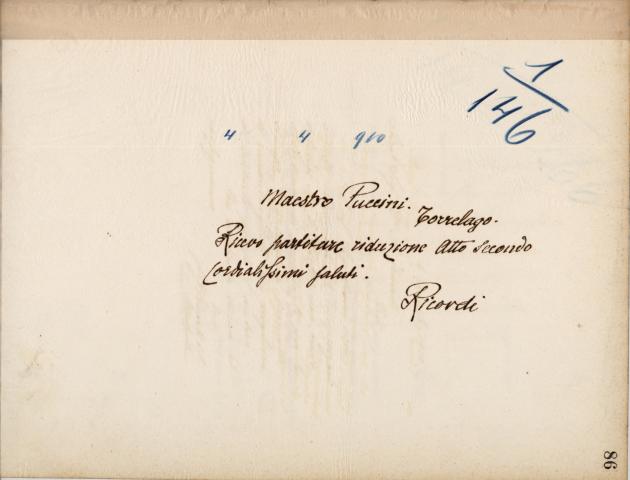 1/146
4 4 910
Maestro Puccini.
Torrelago.
Ricevo partiture riduzione Atto secondo
Cordialissimi saluti.
Ricordi
86